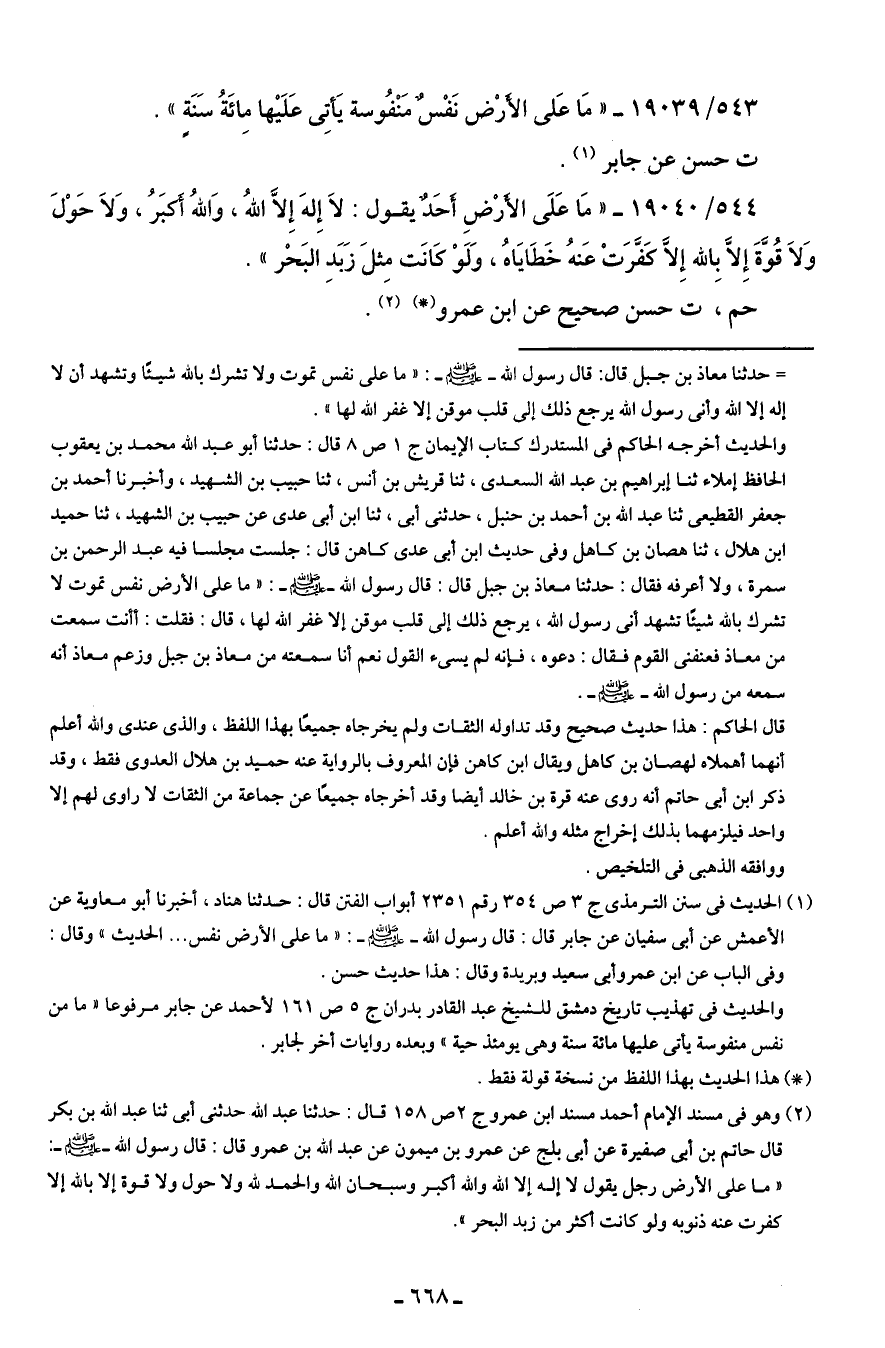 ٥٤٣/ ١٩٠٣٩ ـ « مَا عَلى الأَرْض نَفْسٌ مَنْفُوسة يَأتِى عَلَيْها مِائَةُ سَنَةٍ » .
ت حسن عن جابر (١) .
٥٤٤/ ١٩٠٤٠ ـ « مَا عَلَى الأَرْضِ أَحَدٌ يقـول : لاَ إلهَ إلاَّ اللهُ ، وَاللهُ أَكبَرُ ، وَلاَ حَوْلَ
وَلاَ قُوَّةَ إلاَّ بِالله إلاَّ كَفَّرَتْ عَنهُ خَطَايَاهُ ، وَلَوْ كَانَت مِثلَ زَبَدِ البَحْر » .
حم ، ت حسن صحيح عن ابن عمرو(*) (٢) .
= حدثنا معاذ بن جـبل قال: قال رسول الله ـ ﷺ ـ : « ما على نفس تموت ولا تشرك بالله شيـئًا وتشهد أن لا
إله إلا الله وأنى رسول الله يرجع ذلك إلى قلب موقن إلا غفر الله لها » .
والحديث أخرجـه الحاكم فى المستدرك كـتاب الإيمان ج ١ ص ٨ قال : حدثنا أبو عـبد الله محمـد بن يعقوب
الحافظ إملاء ثنـا إبراهيم بن عبد الله السعـدى ، ثنا قريش بن أنس ، ثنا حبيب بن الشـهيد ، وأخبـرنا أحمد بن
جعفر القطيعى ثنا عبد الله بن أحمد بن حنبل ، حدثنى أبى ، ثنا ابن أبى عدى عن حبيب بن الشهيد ، ثنا حميد
ابن هلال ، ثنا هصان بن كـاهل وفى حديث ابن أبى عدى كـاهن قال : جلست مجلسـا فيه عبـد الرحمن بن
سمرة ، ولا أعرفه فقال : حدثنا مـعاذ بن جبل قال : قال رسول الله ـ ﷺ ـ : « ما على الأرض نفس تموت لا
تشرك بالله شيئًا تشهد أنى رسول الله ، يرجع ذلك إلى قلب موقن إلا غفر الله لها ، قال : فقلت : أأنت سمعت
من معـاذ فعنفنى القوم فـقال : دعوه ، فـإنه لم يسىء القول نعم أنا سمـعته من معـاذ بن جبل وزعم معـاذ أنه
سمعه من رسول الله ـ ﷺ ـ .
قال الحاكم : هذا حديث صحيح وقد تداوله الثقـات ولم يخرجاه جميعًا بهذا اللفظ ، والذى عندى والله أعلم
أنهما أهملاه لهصـان بن كاهل ويقال ابن كاهن فإن المعروف بالرواية عنه حمـيد بن هلال العدوى فقط ، وقد
ذكر ابن أبى حاتم أنه روى عنه قرة بن خالد أيضا وقد أخرجاه جميعًا عن جماعة من الثقات لا راوى لهم إلا
واحد فيلزمهما بذلك إخراج مثله والله أعلم .
ووافقه الذهبى فى التلخيص .
(١) الحديث فى سنن التـرمذى ج ٣ ص ٣٥٤ رقم ٢٣٥١ أبواب الفتن قال : حـدثنا هناد ، أخبرنا أبو مـعاوية عن
الأعمش عن أبى سفيان عن جابر قال : قال رسول الله ـ ﷺ ـ : « ما على الأرض نفس... الحديث » وقال :
وفى الباب عن ابن عمرو وأبى سعيد وبريدة وقال : هذا حديث حسن .
والحديث فى تهذيب تاريخ دمشق للـشيخ عبد القادر بدران ج ٥ ص ١٦١ لأحمد عن جابر مـرفوعا « ما من
نفس منفوسة يأتى عليها مائة سنة وهى يومئذ حية » وبعده روايات أخر لجابر .
(*) هذا الحديث بهذا اللفظ من نسخة قولة فقط .
(٢) وهو فى مسند الإمام أحمد مسند ابن عمرو ج ٢ص ١٥٨ قـال : حدثنا عبد الله حدثنى أبى ثنا عبد الله بن بكر
قال حاتم بن أبى صفيرة عن أبى بلج عن عمرو بن ميمون عن عبد الله بن عمرو قال : قال رسول الله ـ ﷺ ـ:
« مـا على الأرض رجل يقول لا إلـه إلا الله والله أكبـر وسبـحان الله والحمـد لله ولا حول ولا قـوة إلا بالله إلا
كفرت عنه ذنوبه ولو كانت أكثر من زبد البحر ».
ـ ٦٦٨ ـ